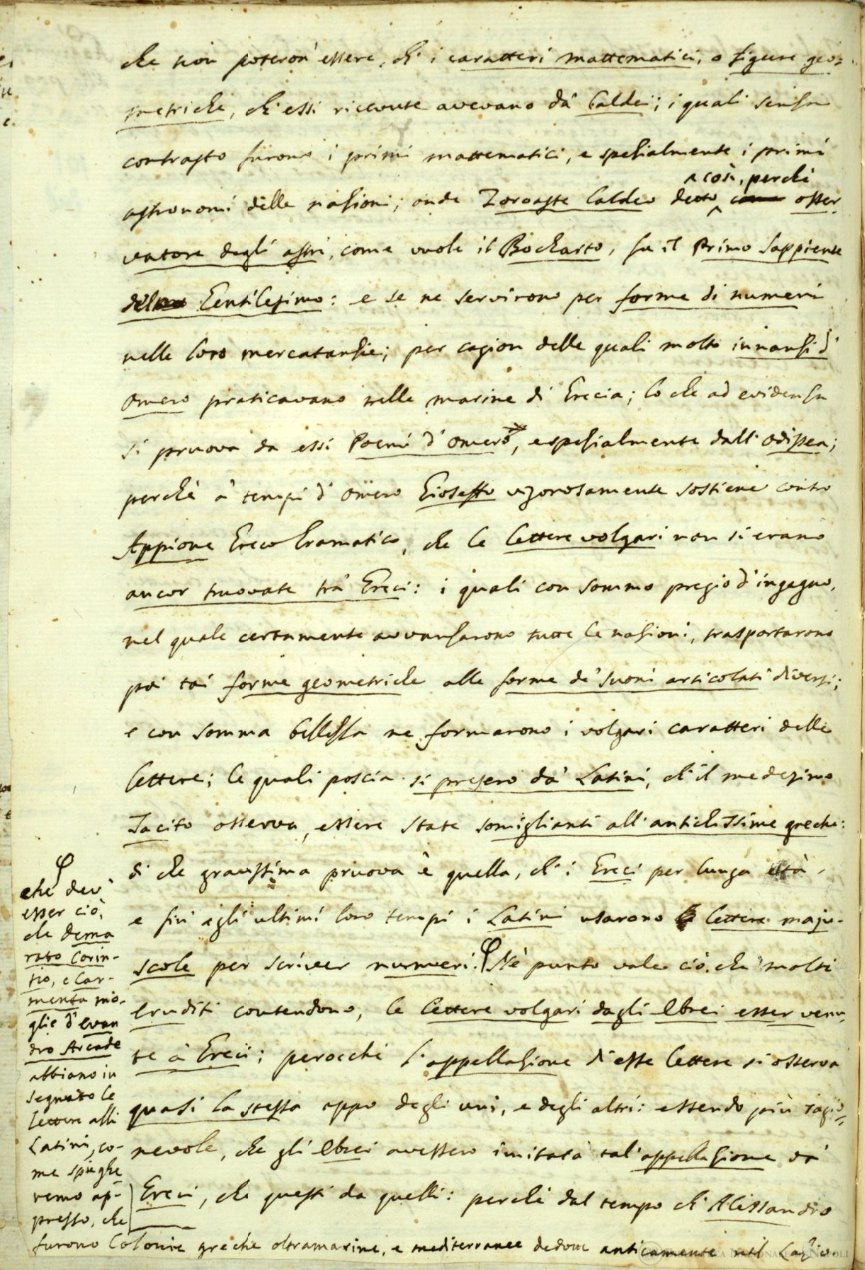 che non poteron' essere, ch' i caratteri mattematici, o figure geo-
metriche, ch' essi ricevute avevano da' Caldei; i quali senza
contrasto furono i primi mattematici, e spezialmente i primi
astronomi delle nazioni; onde Zoroaste Caldeo detto così, perchè osser-
vatore degli astri, come vuole il Bockarto, fu il Primo Sappiente
del Gentilesimo: e se ne servirono per forme di numeri
nelle loro mercatanzie; per cagion delle quali molto innanzi d'
Omero praticavano nelle marine di Grecia; lo che ad evidenza
si pruova da essi Poemi d'Omero, e spezialmente dall'Odissea;
perchè a' tempi d'Omero Gioseffo vigorosamente sostiene contro
Appione Greco Gramatico, che le lettere volgari non si erano
ancor truovate tra' Greci: i quali con sommo pregio d'ingegno,
nel quale certamente avvanzarono tutte le nazioni, trasportarono
poi tai forme geometriche alle forme de' suoni articolati diversi;
e con somma bellezza ne formarono i volgari caratteri delle
lettere; le quali poscia si presero da' Latini, ch' il medesimo
Tacito osserva, essere state somiglianti all'antichissime greche:
di che gravissima pruova è quella, ch' i Greci per lunga età,
e fin agli ultimi loro tempi i Latini usarono lettere maju-
scole per scriver numeri: Nè punto vale ciò, che molti
Eruditi contendono, le lettere volgari dagli Ebrei esser venu-
te a' Greci; perocchè l'appellazione di esse lettere si osserva
quasi la stessa appo degli uni, e degli altri: essendo più ragio-
nevole, che gli Ebrei avessero imitata tal'appellazione da'
Greci, che questi da quelli: perchè dal tempo ch' Alessandro
che dev'
esser ciò,
che Dema
rato Corin-
tio, e Car-
menta mo-
glie d'Evan
dro Arcade
abbiano in
segnato le
lettere alli
Latini, co-
me spieghe
remo ap-
presso, che
furono Colonie greche oltramarine, e mediterranee dedotte anticamente nel Lazio